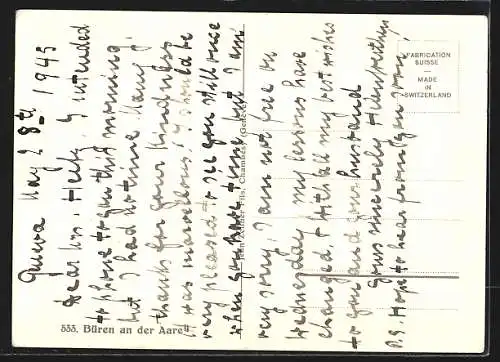 Geneva May 28th 1945
Dear Mrs. Hertz, I intended
to phone to you this morning
but I had no time. Many
thanks for your kindness
it was marvellous! I should be
very pleased to see you still once
when you have time but I am
very sorry, I am not free on
Wednesday my lessons have
changed. With all my best wishes
to you and your husband
yours sincerely
P.S. Hope to hear from you soon
555. Büren an der Aare
Jean Zähner Fils, Chambésy (Genève)
FABRICATION
SUISSE
—
MADE
IN
SWITZERLAND